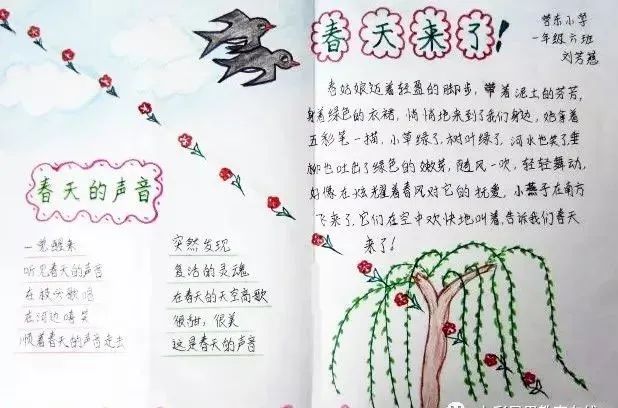 春天来了!
营东小学
一年级六班
刘芳慈
春姑娘迈着轻盈的脚步,带着泥土的芳芳,
身着绿色的衣裙,悄悄地来到了我们身边,她拿着
五彩笔一描,小草绿了,树叶绿了,河水也笑了垂
柳也吐出了绿色的嫩芽,随风一吹,轻轻舞动,
好像在炫耀着春风对它的抚爱,小燕子在南方
飞来了,它们在空中欢快地叫着,告诉我们春天
来了!
春天的声音
一觉醒来
听见春天的声音
在枝头歌唱
在河边嘻笑
顺着春天的声音走去
突然发现
复活的灵魂
在春天的天空高歌
很甜,很美
这是春天的声音